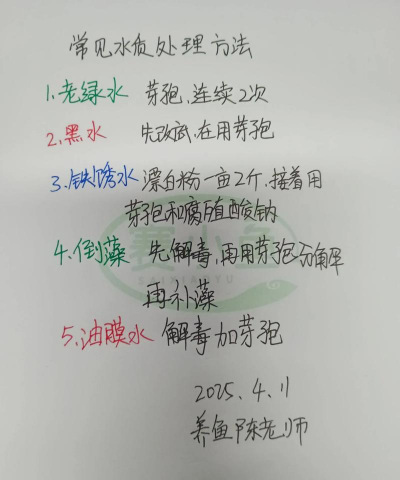 常见水质处理方法
1.老绿水 芽孢,连续2次
2.黑水 先改武,在用芽孢
3.铁锈水 漂白粉一亩2斤.接着用
芽孢和腐殖酸钠
4.倒藻 先解毒,再用芽孢分解
再补藻
5.油膜水 解毒加芽孢
2025.4.11
养鱼陈老师